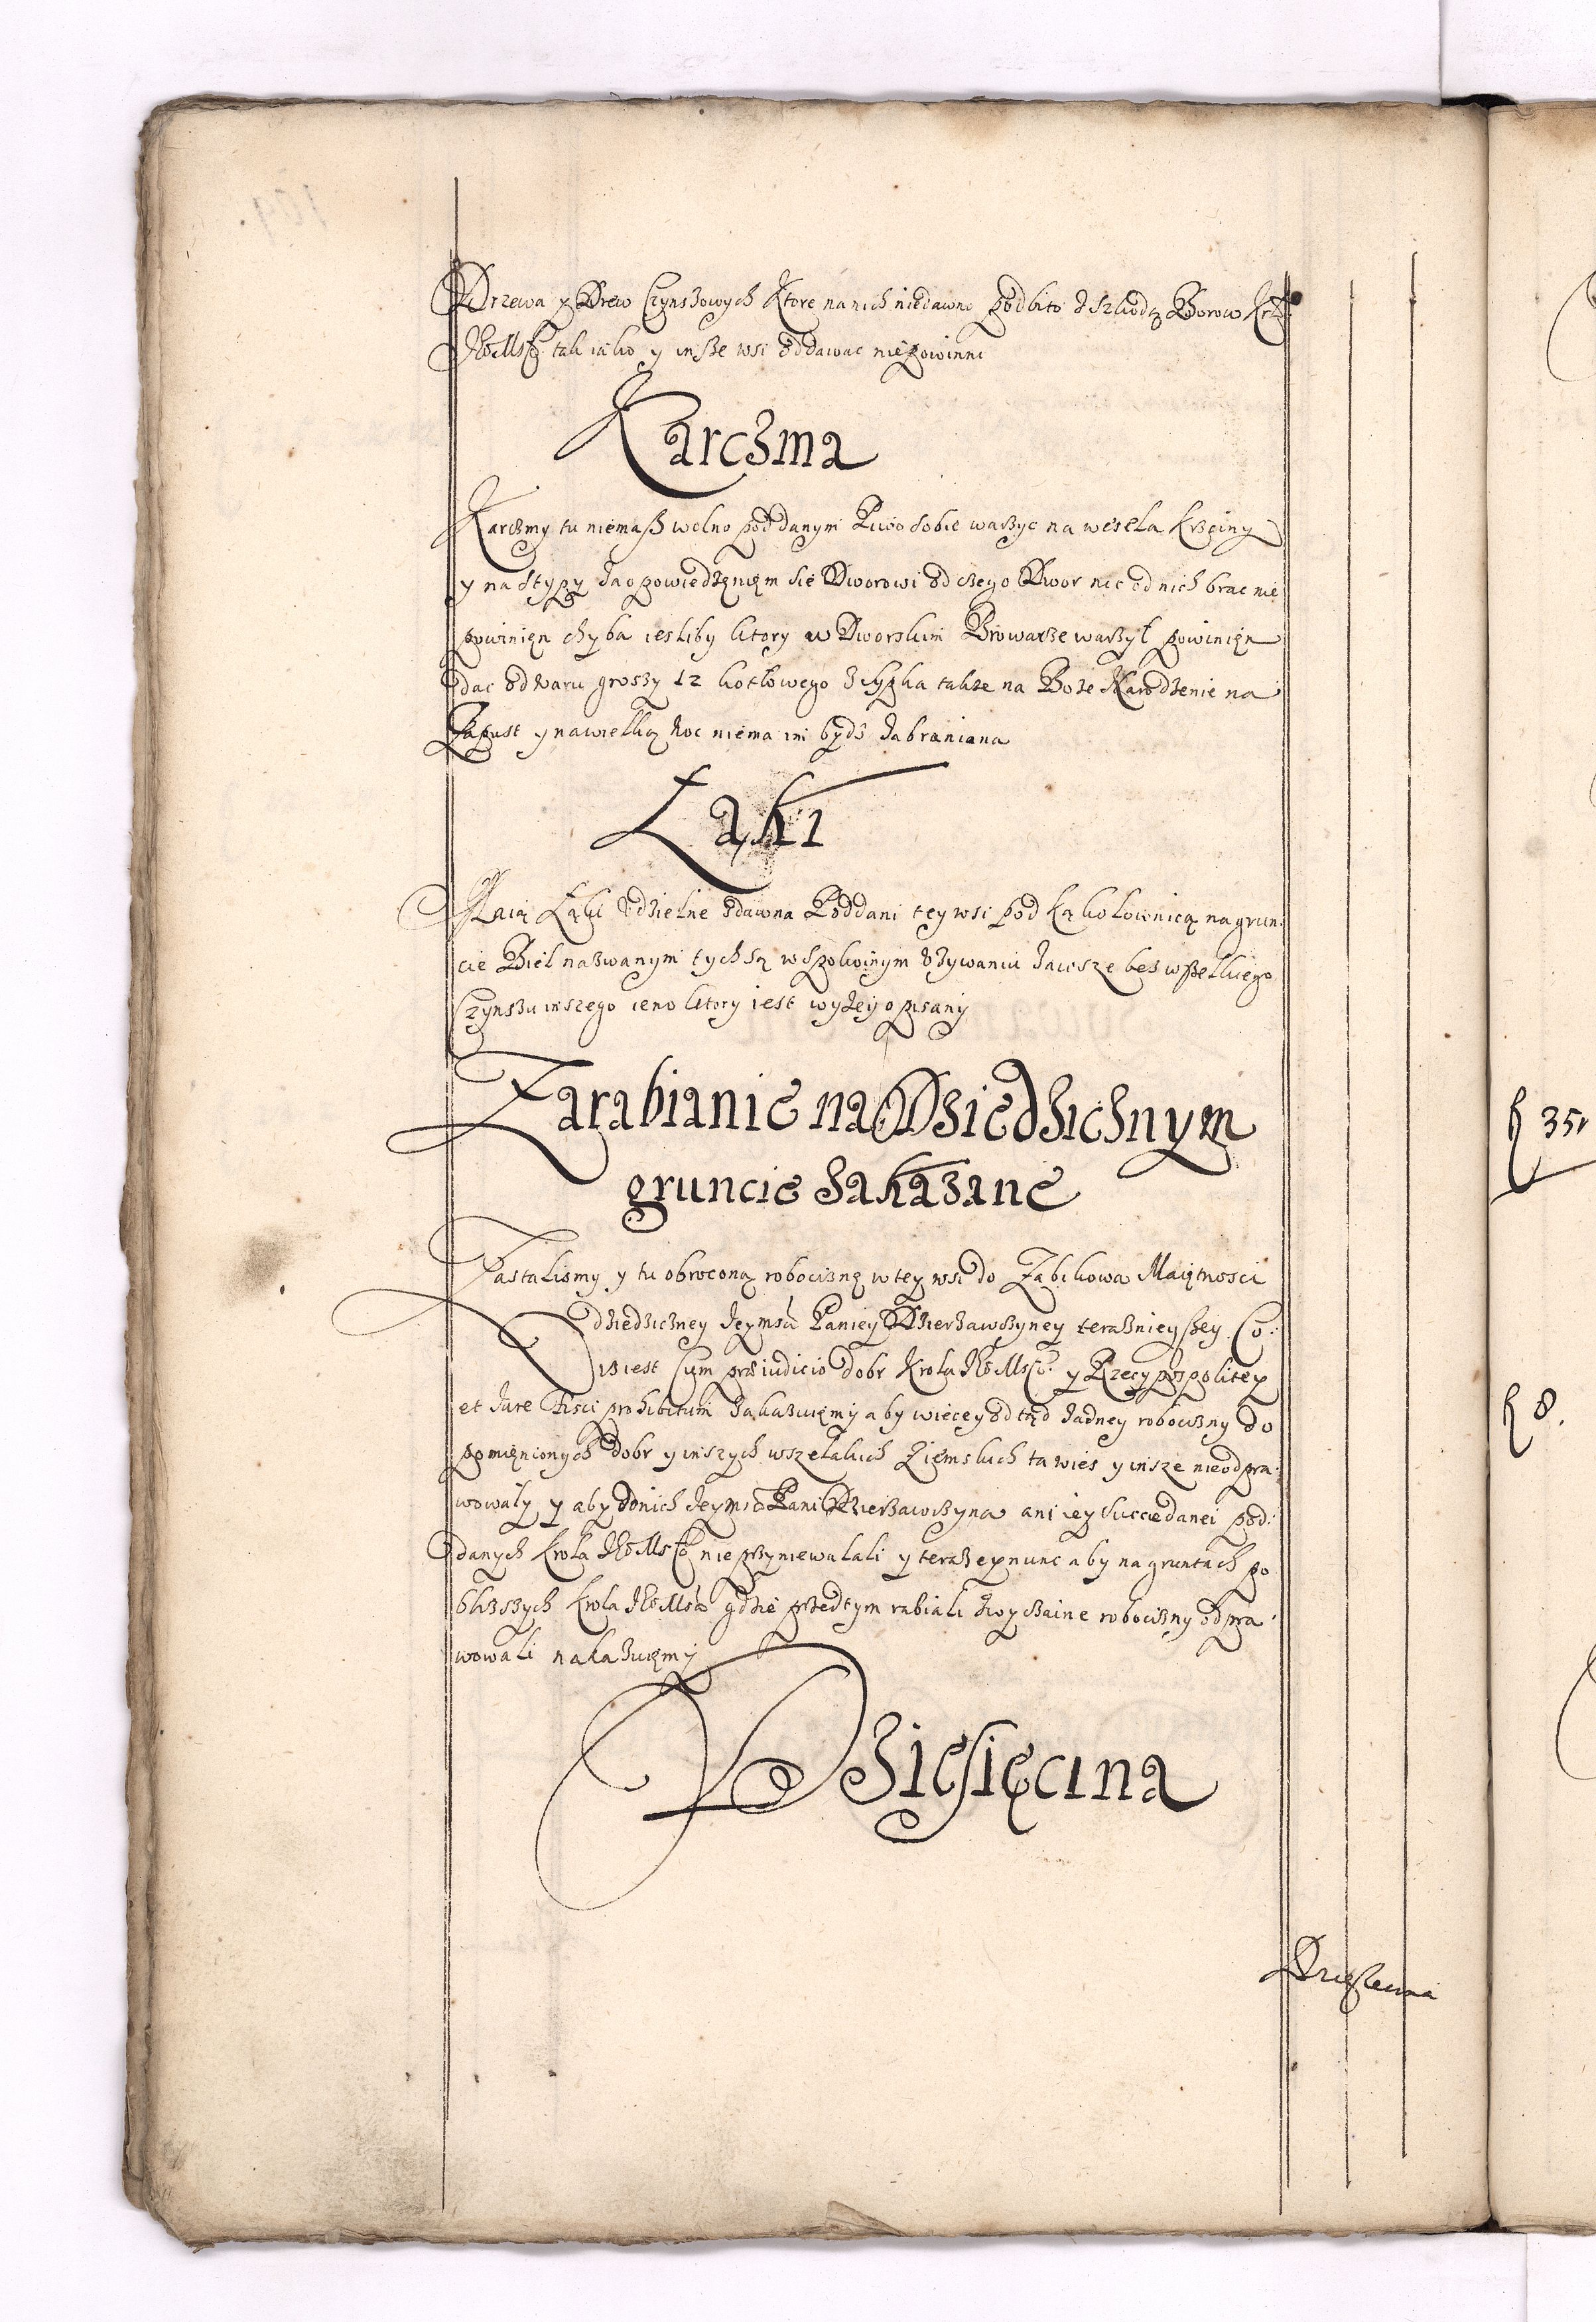 Drzewa y Drew Czynszowych Ktore na nich niedawno podbito z szkodą Borow Kr:
JKoMsci tak iako y insze wsi oddawac niepowinni
Karczma
Karczmy tu niemasz wolno poddanym Piwo sobie warzyc na wesela Krzciny
y na Stypy za opowiedzenięm się Dworowi od czego Dwor nic od nich brac nie
powinięn chyba iesliby ktory w Dworskim Browarze warzył powinięn
dac od waru groszy 12 kotłowego Zsypka także na Boże Narodzenie na
Zapust y na wielką noc niema im bydź zabraniana
Łąki
Maią Łąki oddzielne zdawna Poddani tey wsi pod Kąkolownicą na grun:
cie Biel nazwanym tych są w spokoinym używaniu zawsze bez wszelkiego
Czynszu inszego ieno ktory iest wyżey opisany
Zarabianie na Dziedzicznym
gruncie zakazane
Zastalismy y tu obroconą robociznę w tey wsi do Ząbikowa Maiętnosci
dziedziczney Jeymsci Paniey Dzierzawczyney teraznieyszey. Co:
iż iest Cum præiudicio dobr Krola JKoMsci y Rzeczypospolitey
et Jure Fisci prohibitum zakazuięmy aby więcey odtąd żadney robocizny do
pomięnionych dobr y inszych wszelakich Ziemskich ta wies y insze nieodpra:
wowały y aby do nich Jeymsc Pani Dzierzawczyna ani iey Succedanei pod:
danych Krola JKoMsci nie przyniewalali y teraz ex nunc aby na gruntach po
bliższych Krola JKoMsci gdzie przedtym rabiali zwyczaine robocizny odpra:
wowali nakazuięmy
Dziesięcina
Dzięsięcina
35
8.